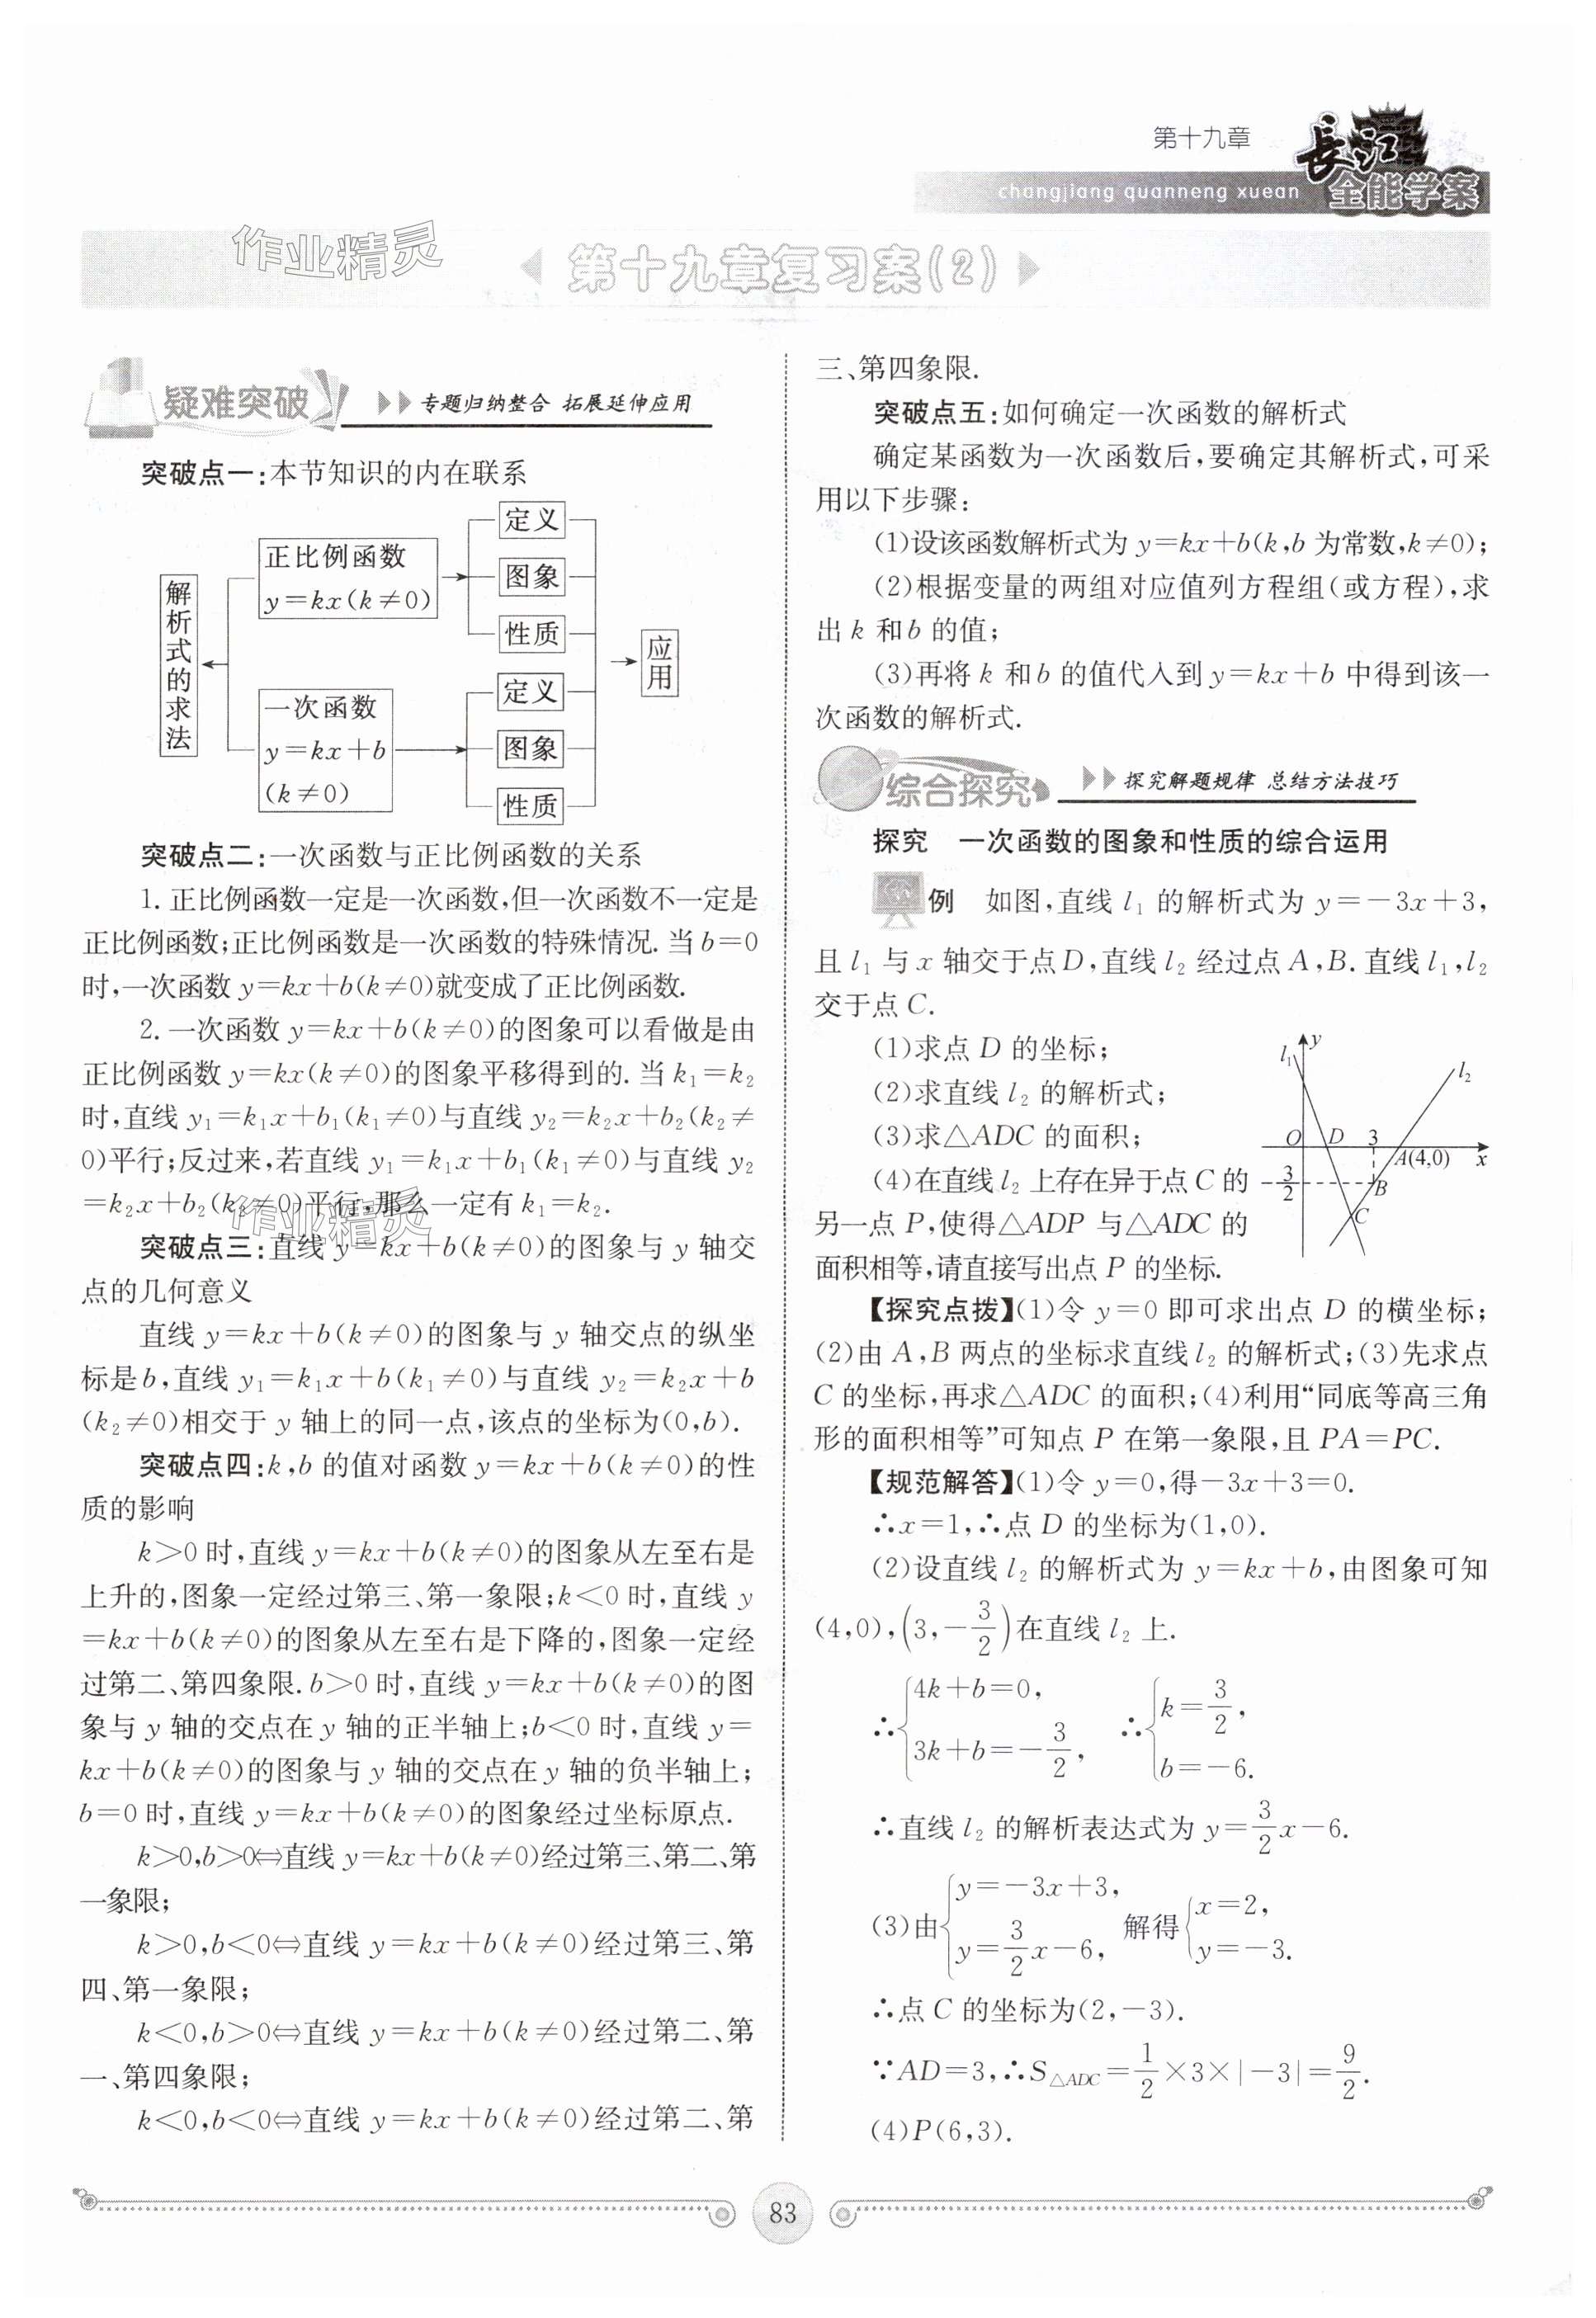 第十九章
長江
全能学案
changjiang quanneng xuean
作业精灵
第十九章复习案(2)
疑难突破
专题归纳整合 拓展延伸应用
突破点一:本节知识的内在联系
解析式的求法
正比例函数
y=kx(k≠0)
定义
图象
性质
一次函数
y=kx+b
(k≠0)
定义
图象
性质
应用
突破点二:一次函数与正比例函数的关系
1. 正比例函数一定是一次函数,但一次函数不一定是
正比例函数;正比例函数是一次函数的特殊情况. 当 b=0
时,一次函数 y=kx+b(k≠0)就变成了正比例函数.
2. 一次函数 y=kx+b(k≠0)的图象可以看做是由
正比例函数 y=kx(k≠0)的图象平移得到的. 当 k₁=k₂
时,直线 y₁=k₁x+b₁(k₁≠0)与直线 y₂=k₂x+b₂(k₂≠
0)平行;反过来,若直线 y₁=k₁x+b₁(k₁≠0)与直线 y₂
=k₂x+b₂(k₂≠0)平行,那么一定有 k₁=k₂.
作业精灵
突破点三:直线 y=kx+b(k≠0)的图象与 y 轴交
点的几何意义
直线 y=kx+b(k≠0)的图象与 y 轴交点的纵坐
标是 b,直线 y₁=k₁x+b(k₁≠0)与直线 y₂=k₂x+b
(k₂≠0)相交于 y 轴上的同一点,该点的坐标为(0,b).
突破点四:k,b 的值对函数 y=kx+b(k≠0)的性
质的影响
k>0 时,直线 y=kx+b(k≠0)的图象从左至右是
上升的,图象一定经过第三、第一象限;k<0 时,直线 y
=kx+b(k≠0)的图象从左至右是下降的,图象一定经
过第二、第四象限. b>0 时,直线 y=kx+b(k≠0)的图
象与 y 轴的交点在 y 轴的正半轴上;b<0 时,直线 y=
kx+b(k≠0)的图象与 y 轴的交点在 y 轴的负半轴上;
b=0 时,直线 y=kx+b(k≠0)的图象经过坐标原点.
k>0,b>0⇔直线 y=kx+b(k≠0)经过第三、第二、第
一象限;
k>0,b<0⇔直线 y=kx+b(k≠0)经过第三、第
四、第一象限;
k<0,b>0⇔直线 y=kx+b(k≠0)经过第二、第
一、第四象限;
k<0,b<0⇔直线 y=kx+b(k≠0)经过第二、第
三、第四象限.
突破点五:如何确定一次函数的解析式
确定某函数为一次函数后,要确定其解析式,可采
用以下步骤:
(1)设该函数解析式为 y=kx+b(k,b 为常数,k≠0);
(2)根据变量的两组对应值列方程组(或方程),求
出 k 和 b 的值;
(3)再将 k 和 b 的值代入到 y=kx+b 中得到该一
次函数的解析式.
综合探究
探究解题规律 总结方法技巧
探究 一次函数的图象和性质的综合运用
例 如图,直线 l₁ 的解析式为 y=-3x+3,
且 l₁ 与 x 轴交于点 D,直线 l₂ 经过点 A,B. 直线 l₁,l₂
交于点 C.
(1)求点 D 的坐标;
(2)求直线 l₂ 的解析式;
(3)求△ADC 的面积;
(4)在直线 l₂ 上存在异于点 C 的
另一点 P,使得△ADP 与△ADC 的
面积相等,请直接写出点 P 的坐标.
l₁ y l₂
O D 3 A(4,0) x
-3/2 B
C
【探究点拨】(1)令 y=0 即可求出点 D 的横坐标;
(2)由 A,B 两点的坐标求直线 l₂ 的解析式;(3)先求点
C 的坐标,再求△ADC 的面积;(4)利用“同底等高三角
形的面积相等”可知点 P 在第一象限,且 PA=PC.
【规范解答】(1)令 y=0,得-3x+3=0.
∴x=1,∴点 D 的坐标为(1,0).
(2)设直线 l₂ 的解析式为 y=kx+b,由图象可知
(4,0),(3,-3/2)在直线 l₂ 上.
∴{4k+b=0, 3k+b=-3/2, ∴{k=3/2, b=-6.
∴直线 l₂ 的解析表达式为 y=3/2x-6.
(3)由{y=-3x+3, y=3/2x-6, 解得{x=2, y=-3.
∴点 C 的坐标为(2,-3).
∵AD=3,∴S△ADC=1/2×3×|-3|=9/2.
(4)P(6,3).
83